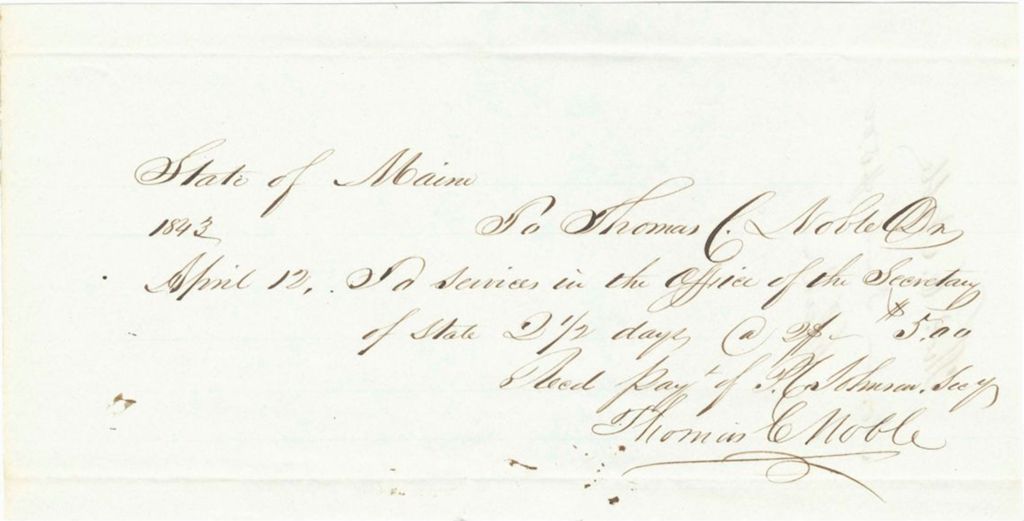 State of Maine
1843 To Thomas C. Noble Dr
April 12, To services in the Office of the Secretary
of State 2 1/2 days @ 2$ - $5.00
Recd payt of P. C. Johnson. Secy
Thomas C Noble